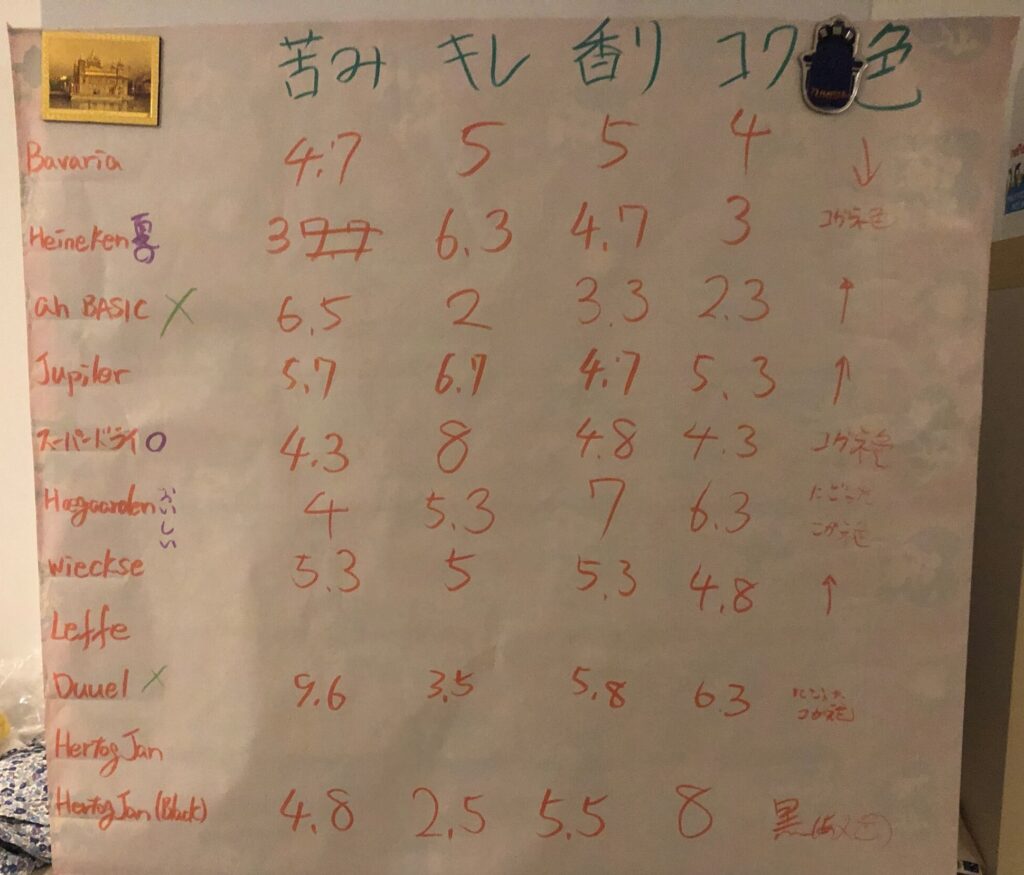 苦み キレ 香り コク 色
Bavaria 4.7 5 5 4 ↓
Heineken 夏〇 3 7.7 6.3 4.7 3 コガネ色
ah BASIC × 6.5 2 3.3 2.3 ↑
Jupiler 5.7 6.7 4.7 5.3 ↑
スーパードライ〇 4.3 8 4.8 4.3 コガネ色
Hoegaarden おいしい 4 5.3 7 6.3 にごった
こがネ色
Wieckse 5.3 5 5.3 4.8 ↑
Leffe
Duuel × 9.6 3.5 5.8 6.3 にごった
コガネ色
Hertog Jan
Hertog Jan (Black) 4.8 2.5 5.5 8 黒